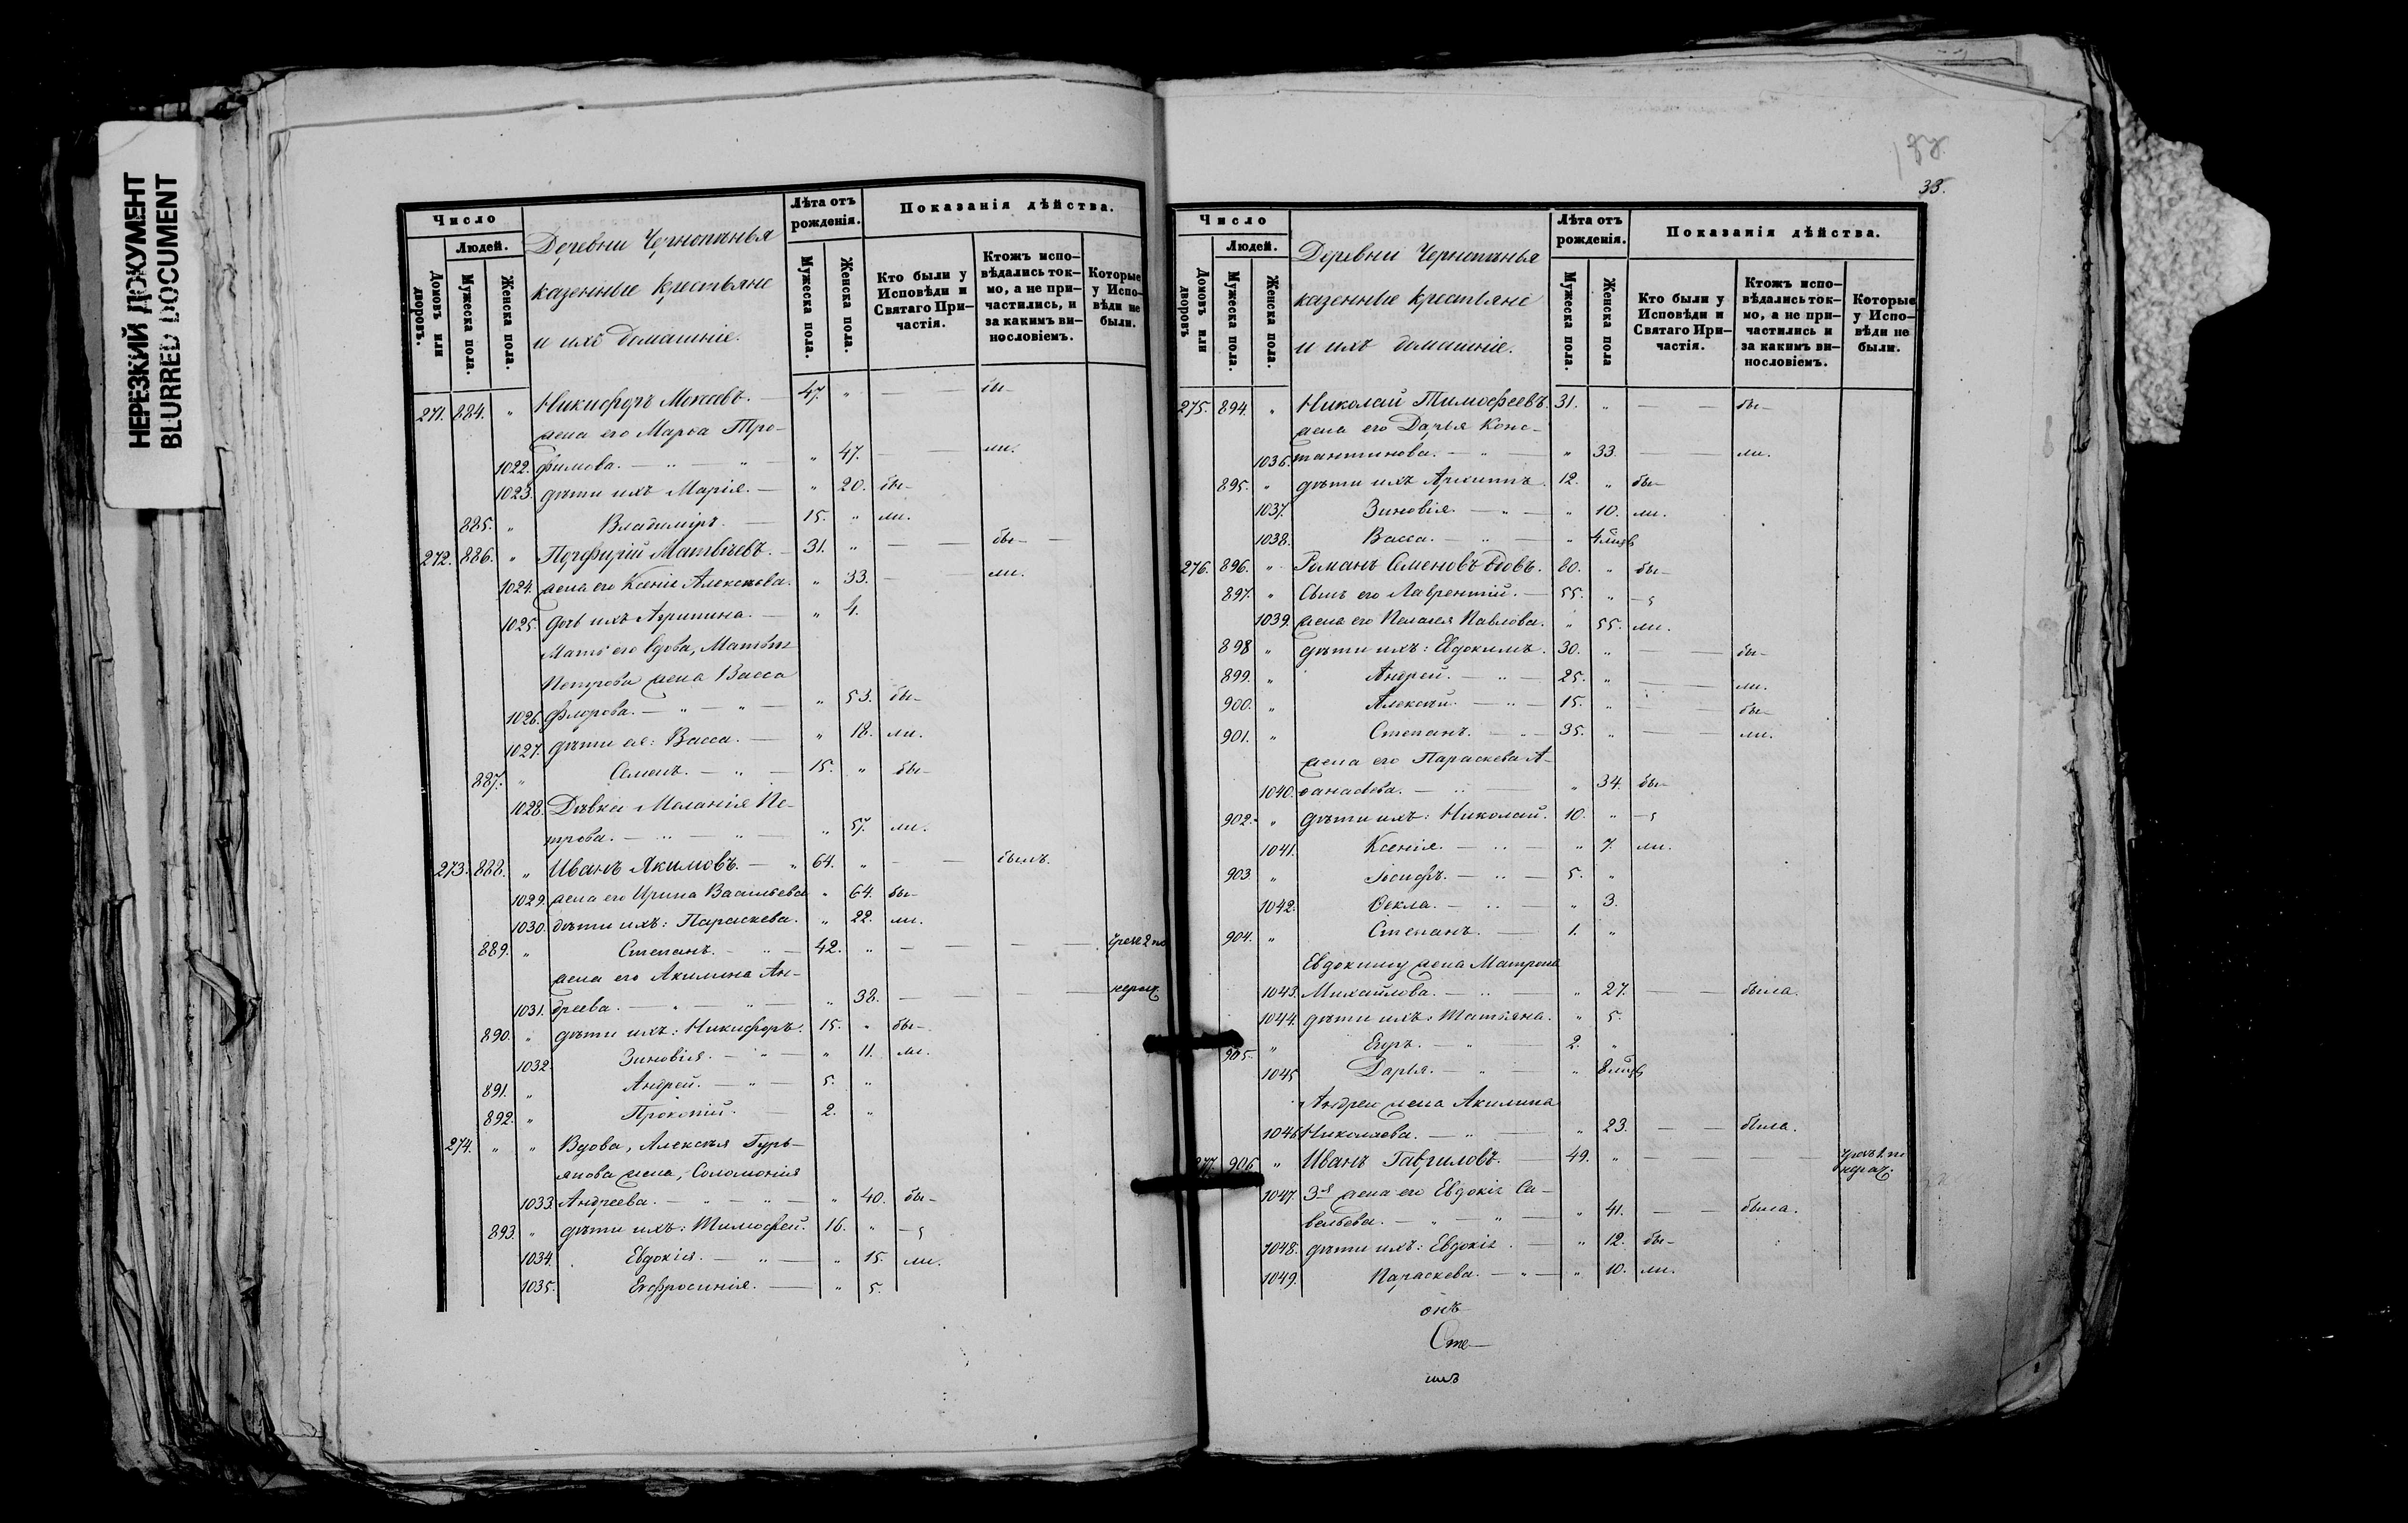 НЕРЕЗКИЙ ДОКУМЕНТ
BLURRED DOCUMENT
Число
Людей.
Домовъ или дворовъ.
Мужеска пола.
Женска пола.
Деревни Чернопенья
казенные крестьяне
и ихъ домашніе.
Лѣта отъ рожденія.
Мужеска пола.
Женска пола.
Показанія дѣйства.
Кто были у Исповѣди и Святаго При-частія.
Ктожъ испо-вѣдались ток-мо, а не при-частились, и за какимъ ви-нословіемъ.
Которые у Испо-вѣди не были.
271. 884. " Никифоръ — 47. " — — бы-
жена его Марѳа Тро-
1022. фимова. — " — " — " 47. — — ли.
1023. дѣти ихъ Марія. — " 20. бы-
885. " Владиміръ. — 15. " ли.
272. 886. " Порфирій Матвѣевъ. — 31. " — бы- —
1024. жена его Ксенія Алексѣева. " 33. — ли.
1025. дочь ихъ Агрипина. — " 4.
Мать его вдова, Матвѣя
Петрова жена Васса
1026. Флорова. — " — " — " 53. бы-
1027. дѣти ея: Васса. — " 18. ли.
887. " Семенъ. — " — 15. " бы-
1028. Дѣвка Меланія Пе-
трова. — " — " — " 57. ли.
273. 888. " Иванъ Якимовъ. — " 64. " — — былъ.
1029. жена его Ирина Васильева " 64. бы-
1030. дѣти ихъ: Параскева. " 22. ли.
889. " Степанъ. — " — 42. " — — — — чрезъ 2 по
жена его Акилина Ан-
1031. дреева. — " — " — " 38. — — — нерад.
890. " дѣти ихъ: Никифоръ. 15. " бы-
1032. Зиновія. — " — " 11. ли.
891. " Андрей. — " — 5. "
892. " Прокопій. — 2. "
274. " " Вдова, Алексѣя Гурь-
янова жена, Соломонія
1033. Андреева. — " — " — " 40. бы-
893. " дѣти ихъ: Тимофей. 16. "
1034. Евдокія. — " — " 15. ли.
1035. Евфросинія. — " 5.
33.
Число
Людей.
Домовъ или дворовъ
Мужеска пола.
Женска пола.
Деревни Чернопенья
казенные крестьяне
и ихъ домашніе.
Лѣта отъ рожденія.
Мужеска пола.
Женска пола
Показанія дѣйства.
Кто были у Исповѣди и Святаго При-частія.
Ктожъ испо-вѣдались ток-мо, а не при-частились и за какимъ ви-нословіемъ.
Которые у Испо-вѣди не были.
275. 894. " Николай Тимофеевъ. 31. " — — бы-
жена его Дарья Конс-
1036. тантинова. — " — " 33. — — ли.
895. " дѣти ихъ Архиппъ. 12. " бы-
1037. Зиновія. — " — " 10. ли.
1038. Васса. — " — "
276. 896. " Романъ Семеновъ вдовъ. 80. " бы-
897. " Сынъ его Лаврентій. — 55. "
1039. жена его Пелагея Павлова. " 55. ли.
898 " дѣти ихъ: Евдокимъ. 30. " — — бы-
899. " Андрей. — " — 25. " — — ли.
900. " Алексѣй. — " — 15. " — — бы-
901. " Степанъ. — " — 35. " — — ли.
жена его Параскева А-
1040. ѳанасьева. — " — " 34. бы-
902. " дѣти ихъ: Николай. 10. "
1041. Ксенія. — " — " 7. ли.
903 " Іосифъ. — " — 5. "
1042. Ѳекла. — " — " 3.
904. " Степанъ. — 1. "
Евдокиму жена Матрена
1043. Михайлова. — " — " 27. — — была.
1044. дѣти ихъ: Татьяна. " 5.
905. " Егоръ. — " — 2. "
1045 Дарья. — " — "
Андрею жена Акилина
1046. Николаева. — " — " 23. — — была.
277. 906 " Иванъ Гавриловъ. — 49. " — — — — чрезъ 1. по нерад.
1047. 3-я жена его Евдокія Са-
вельева. — " — " — " 41. — — была.
1048. дѣти ихъ: Евдокія. — " 12. бы-
1049. Параскева. — " — " 10. ли.